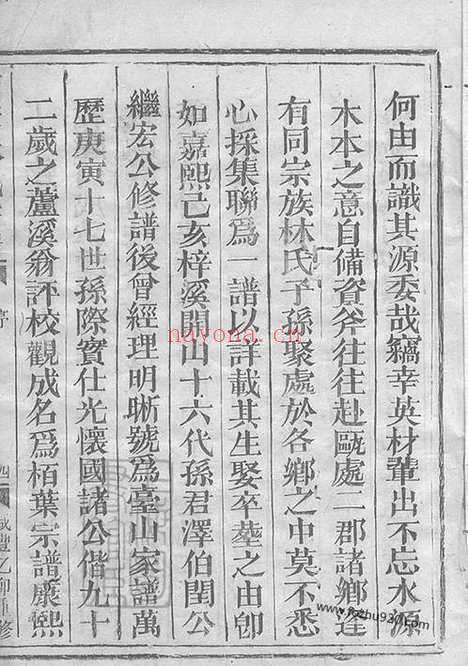 何由而識其源委哉竊幸英材輩出不忘水源
木本之意自備資斧往往赴甌處二郡諸鄉達
有同宗族林氏子孫聚處於各鄉之中莫不悉
心採集聯為一譜以詳載其生娶卒塟之由卽
如嘉熙己亥梓溪開山十六代孫君澤伯閏公
繼宏公修譜後曾經理明晰號爲臺山家譜萬
歷庚寅十七世孫際賓仕光懷國諸公偕九十
二歲之蘆溪翁評校觀成名爲栢葉宗譜康熙
序
四
咸豐乙卯重修
nayona.cn